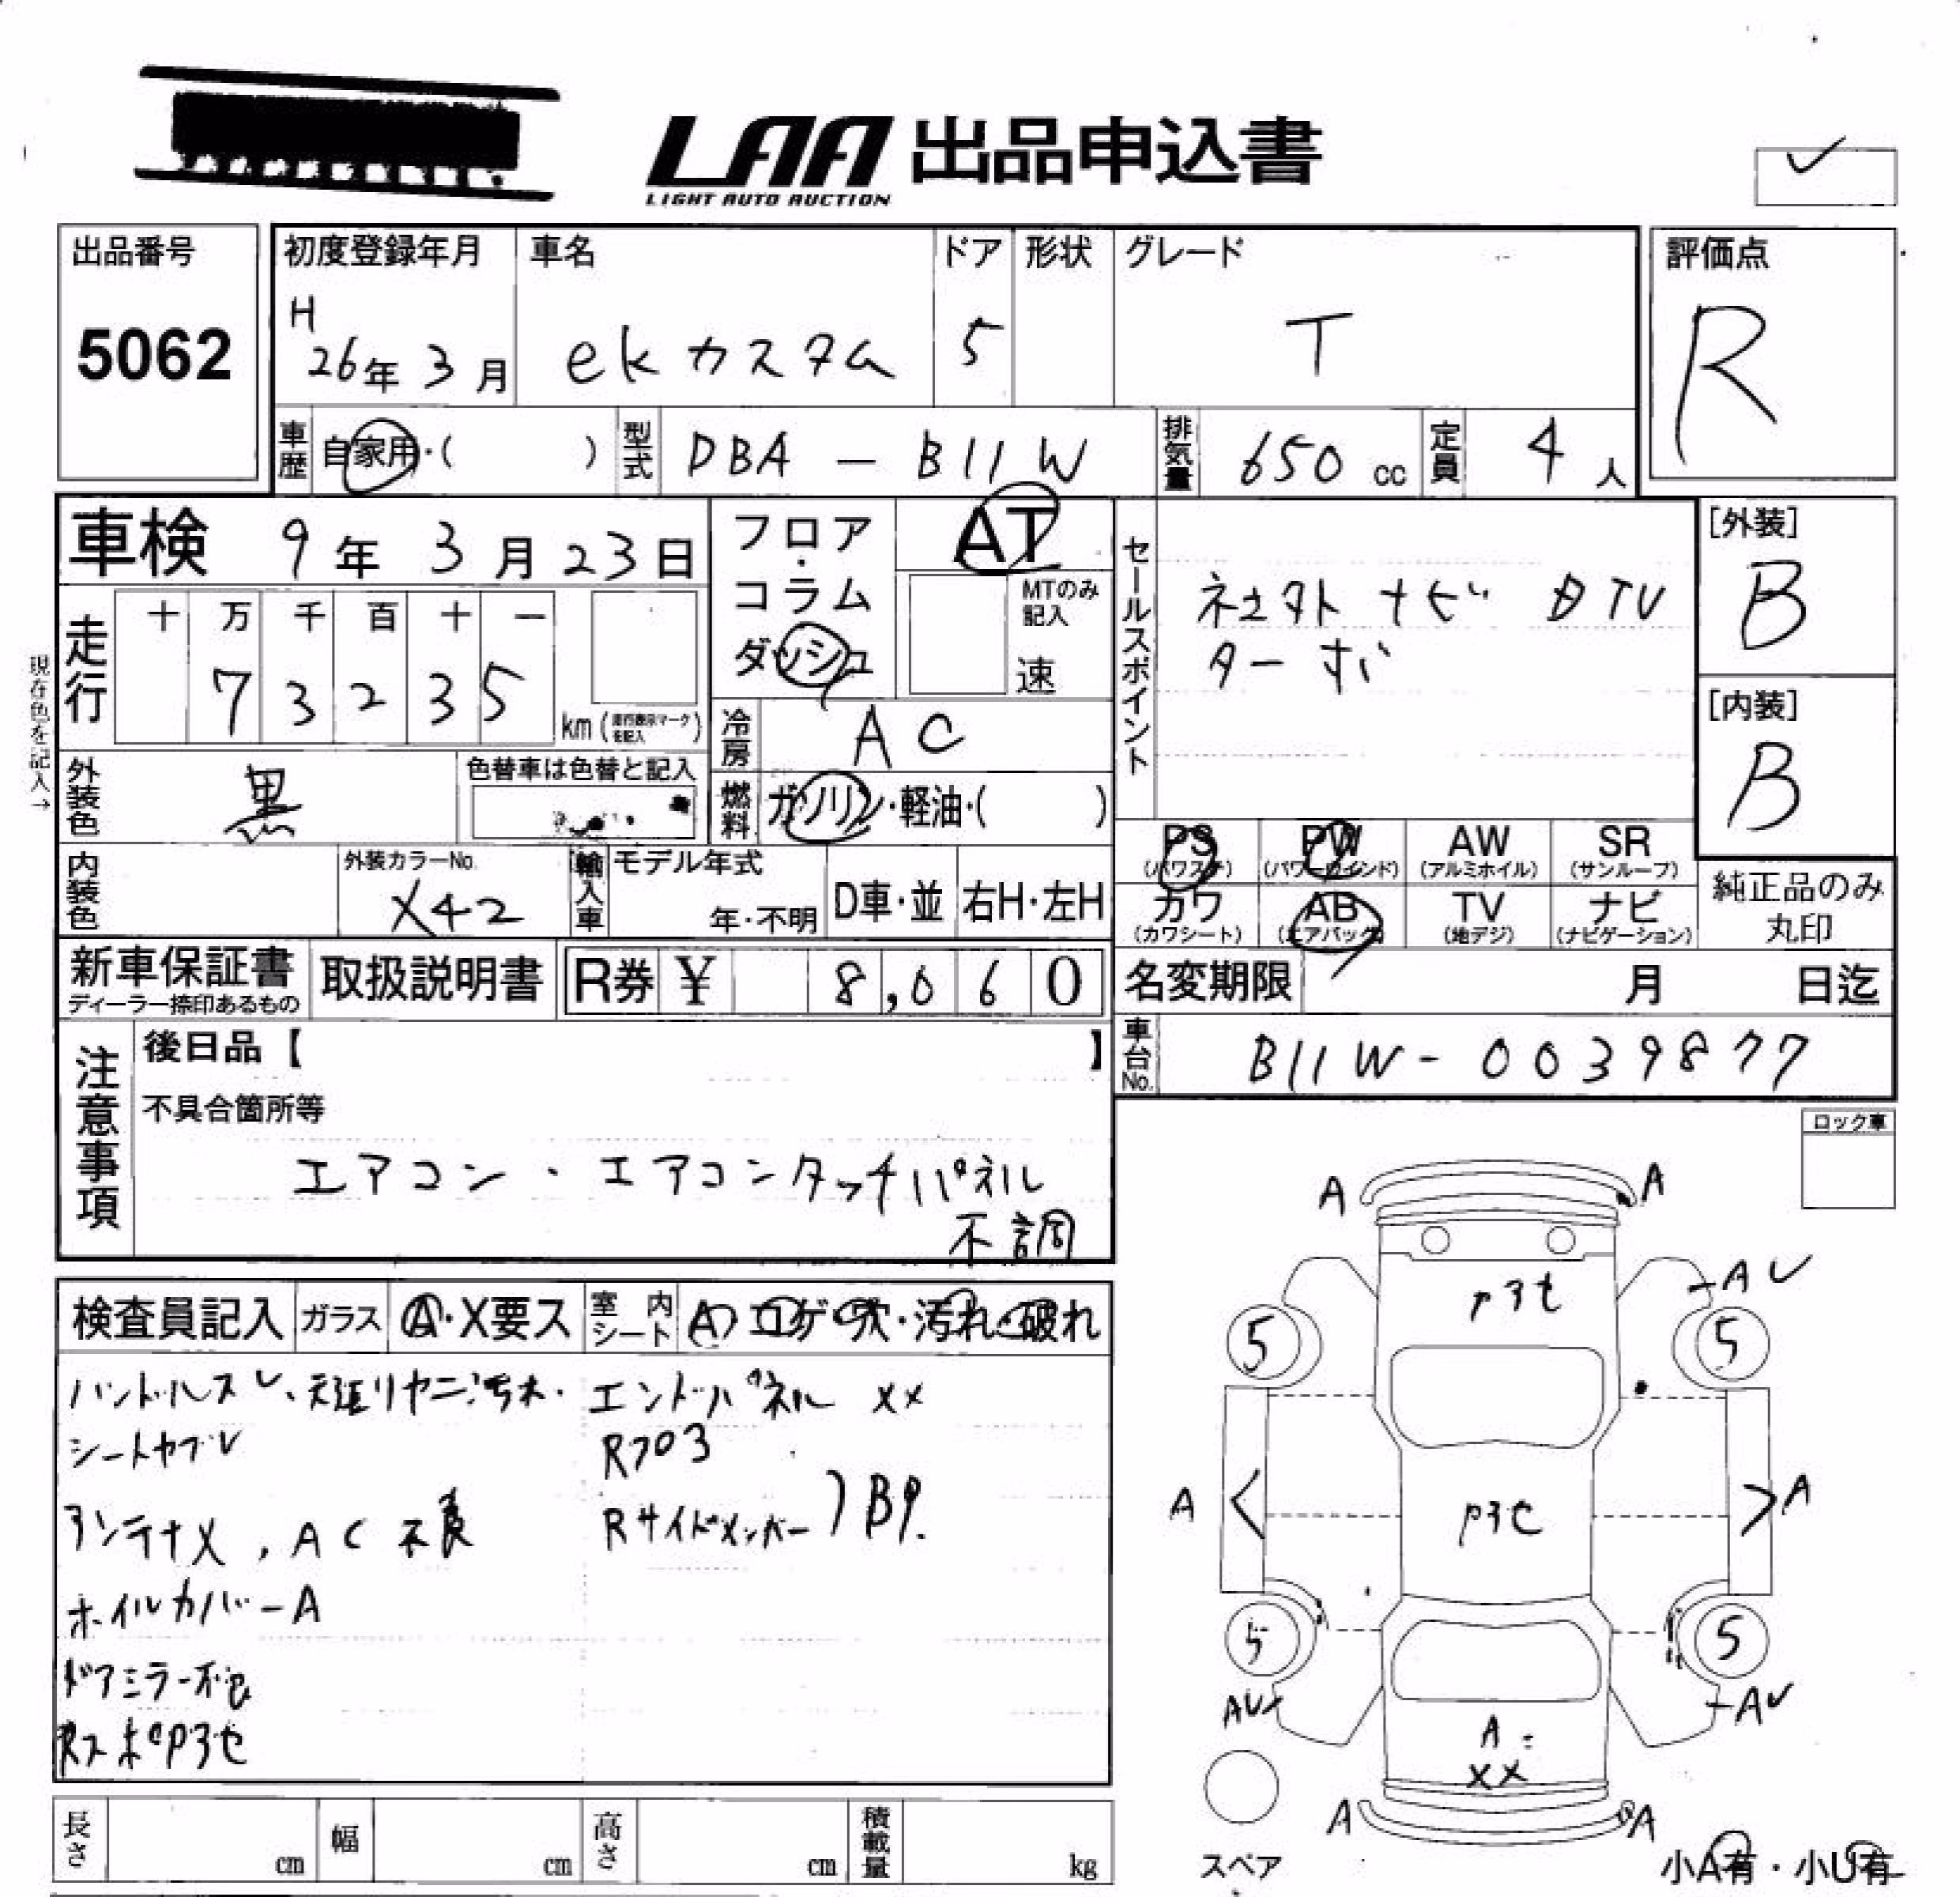 LAA 出品申込書
LIGHT AUTO AUCTION
出品番号
5062
初度登録年月
H
26年 3月
車名
ekカスタム
ドア
5
形状
グレード
T
評価点
R
車歴
自家用・( )
型式
DBA - B11W
排気量
650 cc
定員
4 人
車検 9年 3月 23日
フロア・コラム
ダッシュ
AT
MTのみ記入
速
セールスポイント
社外ナビ 地TV
ターボ
[外装]
B
[内装]
B
現在色を記入→
走行
十 万 千 百 十 一
7 3 2 3 5
km (走行表示マークを記入)
冷房
AC
外装色
黒
色替車は色替と記入
燃料
ガソリン・軽油・( )
内装色
外装カラーNo.
X42
輸入車
モデル年式
年・不明
D車・並
右H・左H
PS
(パワステ)
PW
(パワーウインド)
AW
(アルミホイル)
SR
(サンルーフ)
カワ
(カワシート)
AB
(エアバック)
TV
(地デジ)
ナビ
(ナビゲーション)
純正品のみ
丸印
新車保証書
ディーラー捺印あるもの
取扱説明書
R券 ¥ 8,060
名変期限
月 日迄
車台No.
B11W-0039877
注意事項
後日品【 】
不具合箇所等
エアコン・エアコンタッチパネル
不調
ロック車
検査員記入
ガラス
A・X要ス
室内シート
A コゲ・穴・汚れ・破れ
ハンドルスレ、天張リヤニ汚れ・
シートヤブレ
アンテナX, AC不良
ホイルカバーA
ドアミラー不良
エンドパネル XX
Rフロア
Rサイドメンバー
A
A
A
5
5
A
A
5
5
A
XX
A
A
スペア
小A有・小U有
長さ
cm
幅
cm
高さ
cm
積載量
kg